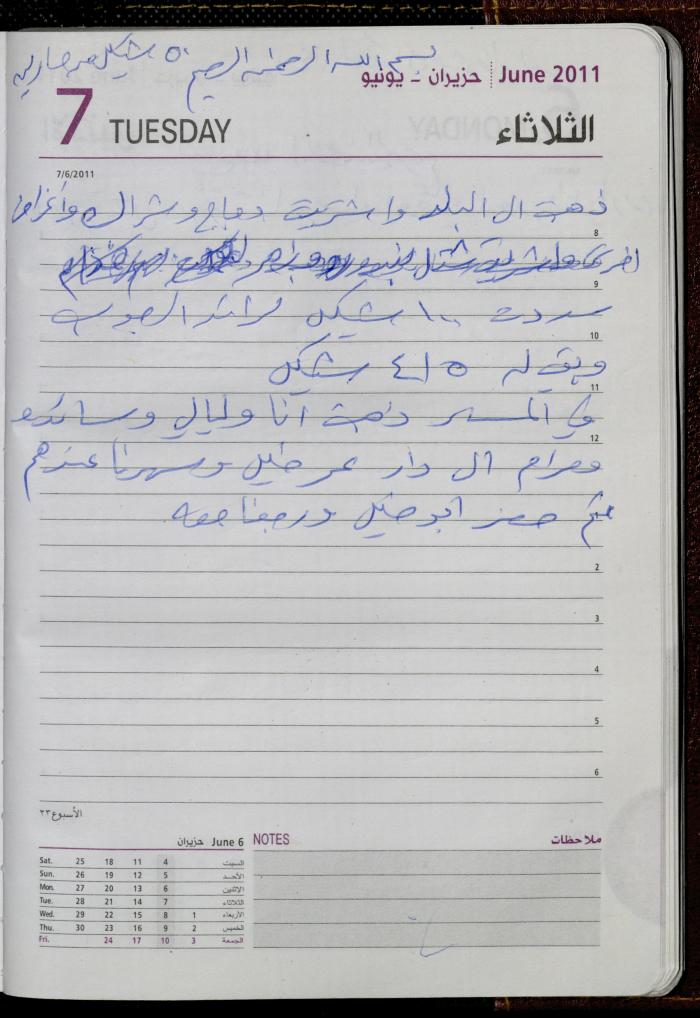 بسم الله الرحمن الرحيم ٥٠ شيكل مصاريف
حزيران - يونيو June 2011
7 TUESDAY الثلاثاء
7/6/2011
ذهبت الى البلد واشتريت دجاج و واغراض
8
اخرى
9
سددت ١٠٠ شيكل لرائد
10
وبقي له ٤١٥ شيكل
11
في المساء ذهبت أنا وليالي وساندي
12
ومرام الى دار عمر خليل وسهرنا عندهم
ثم حضر أبو خليل ورجعنا معه
2
3
4
5
6
الأسبوع ٢٣
June 6 حزيران
Sat. 25 18 11 4 السبت
Sun. 26 19 12 5 الأحد
Mon. 27 20 13 6 الاثنين
Tue. 28 21 14 7 الثلاثاء
Wed. 29 22 15 8 1 الأربعاء
Thu. 30 23 16 9 2 الخميس
Fri. 24 17 10 3 الجمعة
NOTES ملاحظات